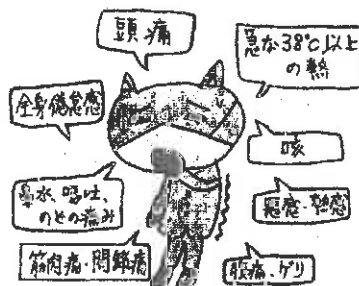 頭痛
急な38℃以上
の熱
全身倦怠感
咳
鼻水、嘔吐、
のどの痛み
悪寒・熱感
筋肉痛・関節痛
腹痛・ゲリ